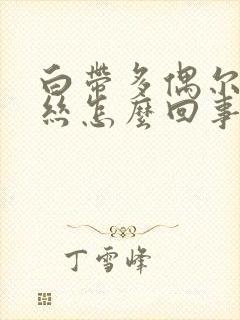 白帶多偶尔
絲怎麼回事
丁雪峰